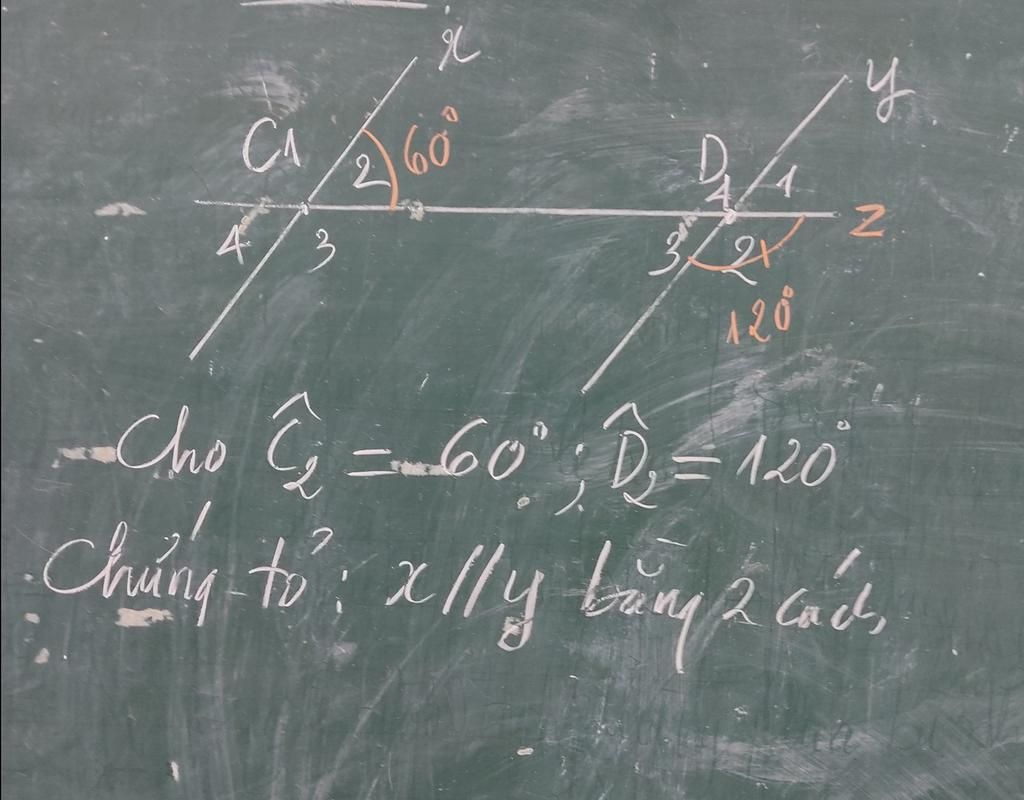 x
y
C 1
2
60°
D
4
1
z
4
3
3
2
120°
Cho Ĉ₂ = 60° ; D̂₂ = 120°
Chứng tỏ : x // y bằng 2 cách